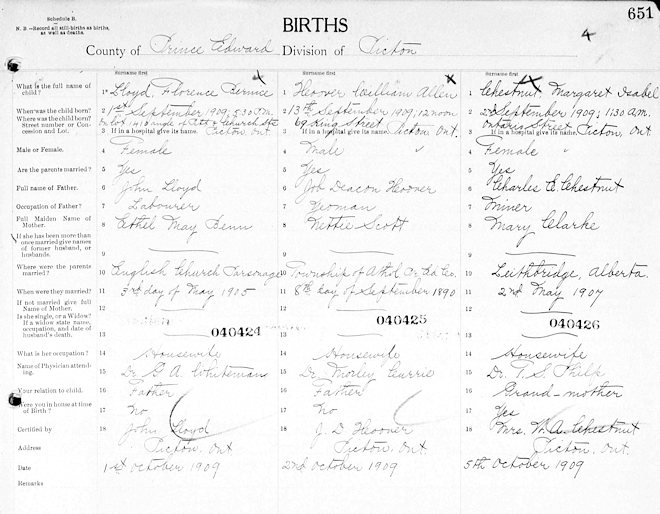 Schedule B.
N. B.—Record all still-births as births,
as well as deaths.
BIRTHS
651
4
County of Prince Edward Division of Picton
Surname first
Surname first
Surname first
What is the full name of child?
1 Lloyd Florence Bernice
1 Hoover William Allen
1 Chestnut Margaret Isabel
When was the child born?
Where was the child born? Street number or Concession and Lot.
2 1st September 1909; 5:30 A.M.
2 13th September 1909; 12 noon
2 2nd September 1909; 1:30 A.M.
69 King Street
Ontario Street
3 If in a hospital give its name. Picton, Ont.
3 If in a hospital give its name. Picton Ont.
3 If in a hospital give its name. Picton, Ont.
Male or Female.
4 Female
4 Male
4 Female
Are the parents married?
5 Yes
5 Yes
5 Yes
Full name of Father.
6 John Lloyd
6 Job Deacon Hoover
6 Charles E. Chestnut
Occupation of Father?
7 Labourer
7 Yeoman
7 Miner
Full Maiden Name of Mother.
8 Ethel May Benn
8 Nettie Scott
8 Mary Clarke
If she has been more than once married give names of former husband, or husbands.
9
9
9
Where were the parents married?
10 English Church Parsonage
10 Township of Athol Pr. Ed. Co.
10 Lethbridge, Alberta.
When were they married?
11 3rd day of May 1905
11 8th day of September 1890
11 2nd May 1907
If not married give full Name of Mother.
12
12
12
Is she single, or a Widow? If a widow state name, occupation, and date of husband's death.
13 040424
13 040425
13 040426
What is her occupation?
14 Housewife
14 Housewife
14 Housewife
Name of Physician attending.
15 Dr. G A Whiteman
15 Dr. Morley Currie
15 Dr. T. S. Philp
Your relation to child.
16 Father
16 Father
16 Grand-mother
Were you in house at time of Birth?
17 No
17 No
17 Yes
Certified by
18 John Lloyd
18 J. D Hoover
18 Mrs. W. A. Chestnut
Address
Picton, Ont
Picton, Ont.
Picton, Ont.
Date
1st October 1909
2nd October 1909
5th October 1909
Remarks